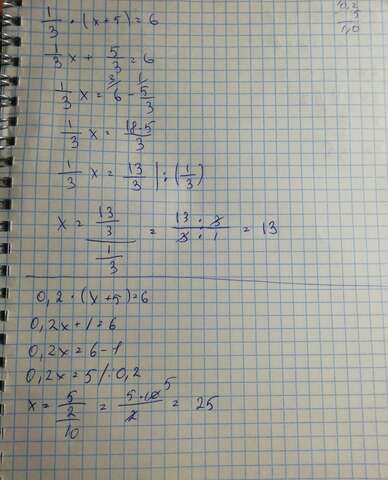 1/3 · (x+5) = 6
1/3 x + 5/3 = 6
1/3 x = 6 - 5/3
1/3 x = 18-5/3
1/3 x = 13/3 | : (1/3)
x = 13/3 / 1/3 = 13 · 3 / 3 · 1 = 13
0,2 · (x+5) = 6
0,2x + 1 = 6
0,2x = 6 - 1
0,2x = 5 / : 0,2
x = 5 / 2/10 = 5 · 10 / 2 5 = 25
0,2
5
1,0